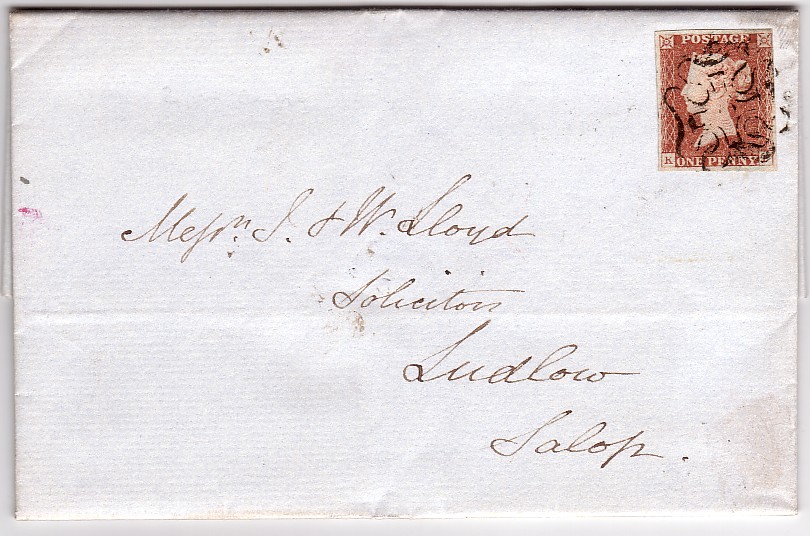 POSTAGE
K
ONE PENNY
Messrs. J. & W. Lloyd
Solicitors
Ludlow
Salop.